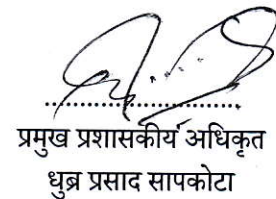 प्रमुख प्रशासकीय अधिकृत
धुब्र प्रसाद सापकोटा